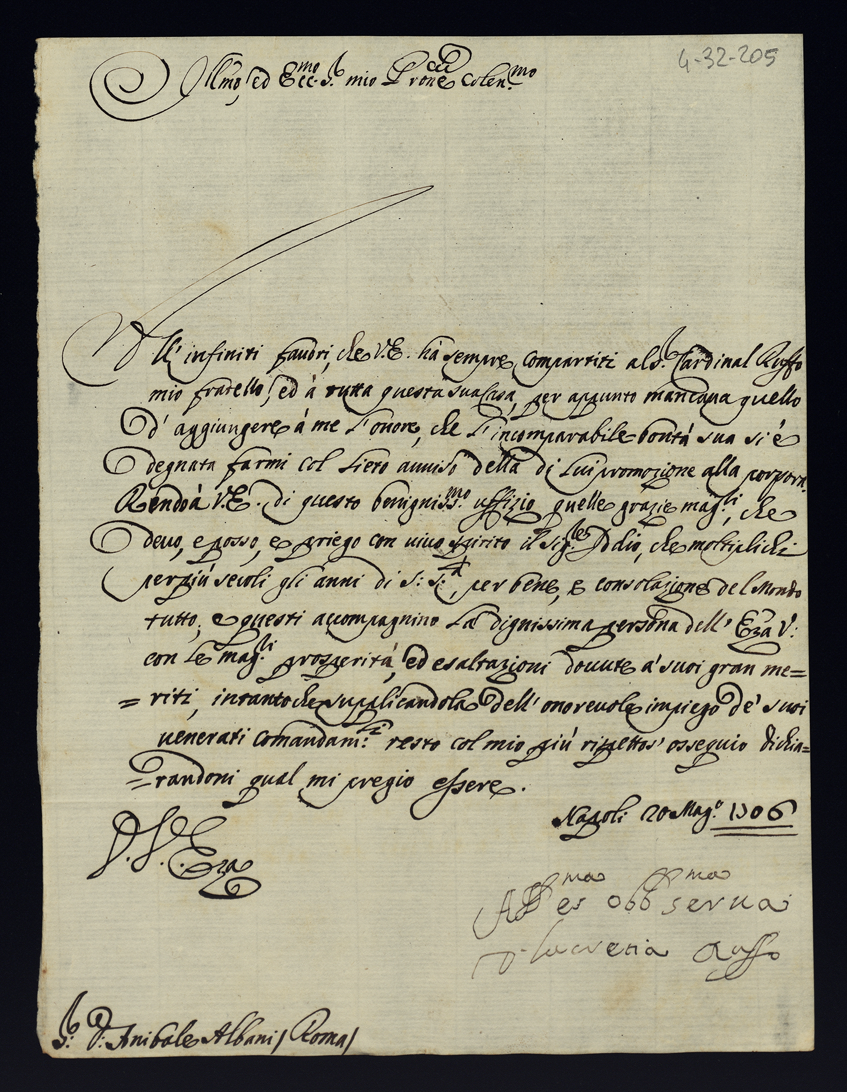 4-32-205
Illmo, ed Ecc.mo S.r mio Prone Colen.mo
All' infiniti favori, che V.E. há sempre compartiti al S.r Cardinal Ruffo
mio fratello, ed á tutta questa sua Casa, per appunto mancava quello
d' aggiungere á me l'onore, che l'incomparabile bontá sua si é
degnata farmi col lieto avviso della di lui promozione alla porpora.
Rendo á V.E. di questo benigniss.mo uffizio quelle grazie mag.ri, che
devo, e posso, e priego con vivo spirito il Sig.re Iddio, che moltiplichi
per piú secoli gli anni di S: S.tá, per bene, e consolazione del Mondo
tutto, e questi accompagnino la dignissima persona dell' Eza V:
con le mag.ri prosperitá, ed esaltazioni dovute a' suoi gran me=
=riti, intanto che supplicandola dell' onorevole impiego de' suoi
venerati comandam.ti resto col mio piú rispettos' ossequio dichia=
=randoni qual mi pregio essere.
Napoli 20 Mag.o 1706
V. S. Eza
obb.ma serua
D. Lucretia Ruffo
S.r D. Anibale Albani / Roma /